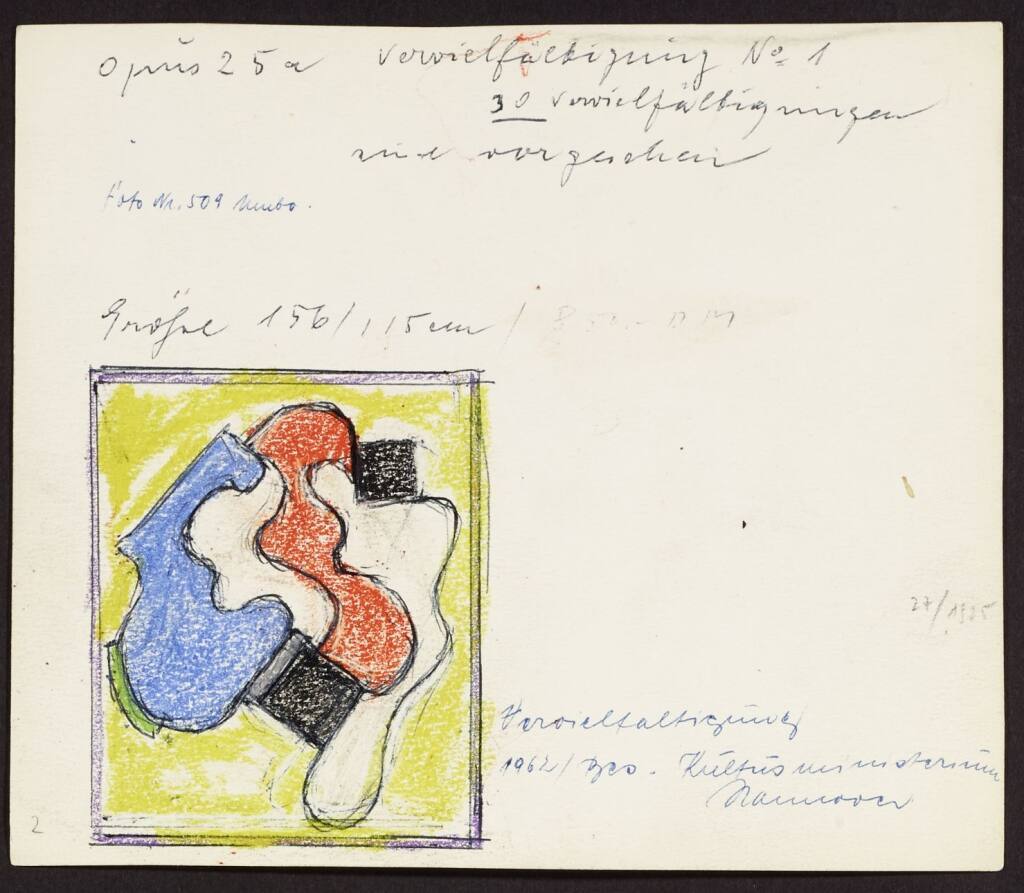 Opus 25a Vervielfältigung No 1
30 Vervielfältigungen
sind vorgesehen
Foto Nr. 509 Umbo.
Größe 156/115 cm / 850.- DM
27/1925
Vervielfaltigung
1962/ Bes. Kultusministerium
Hannover
2